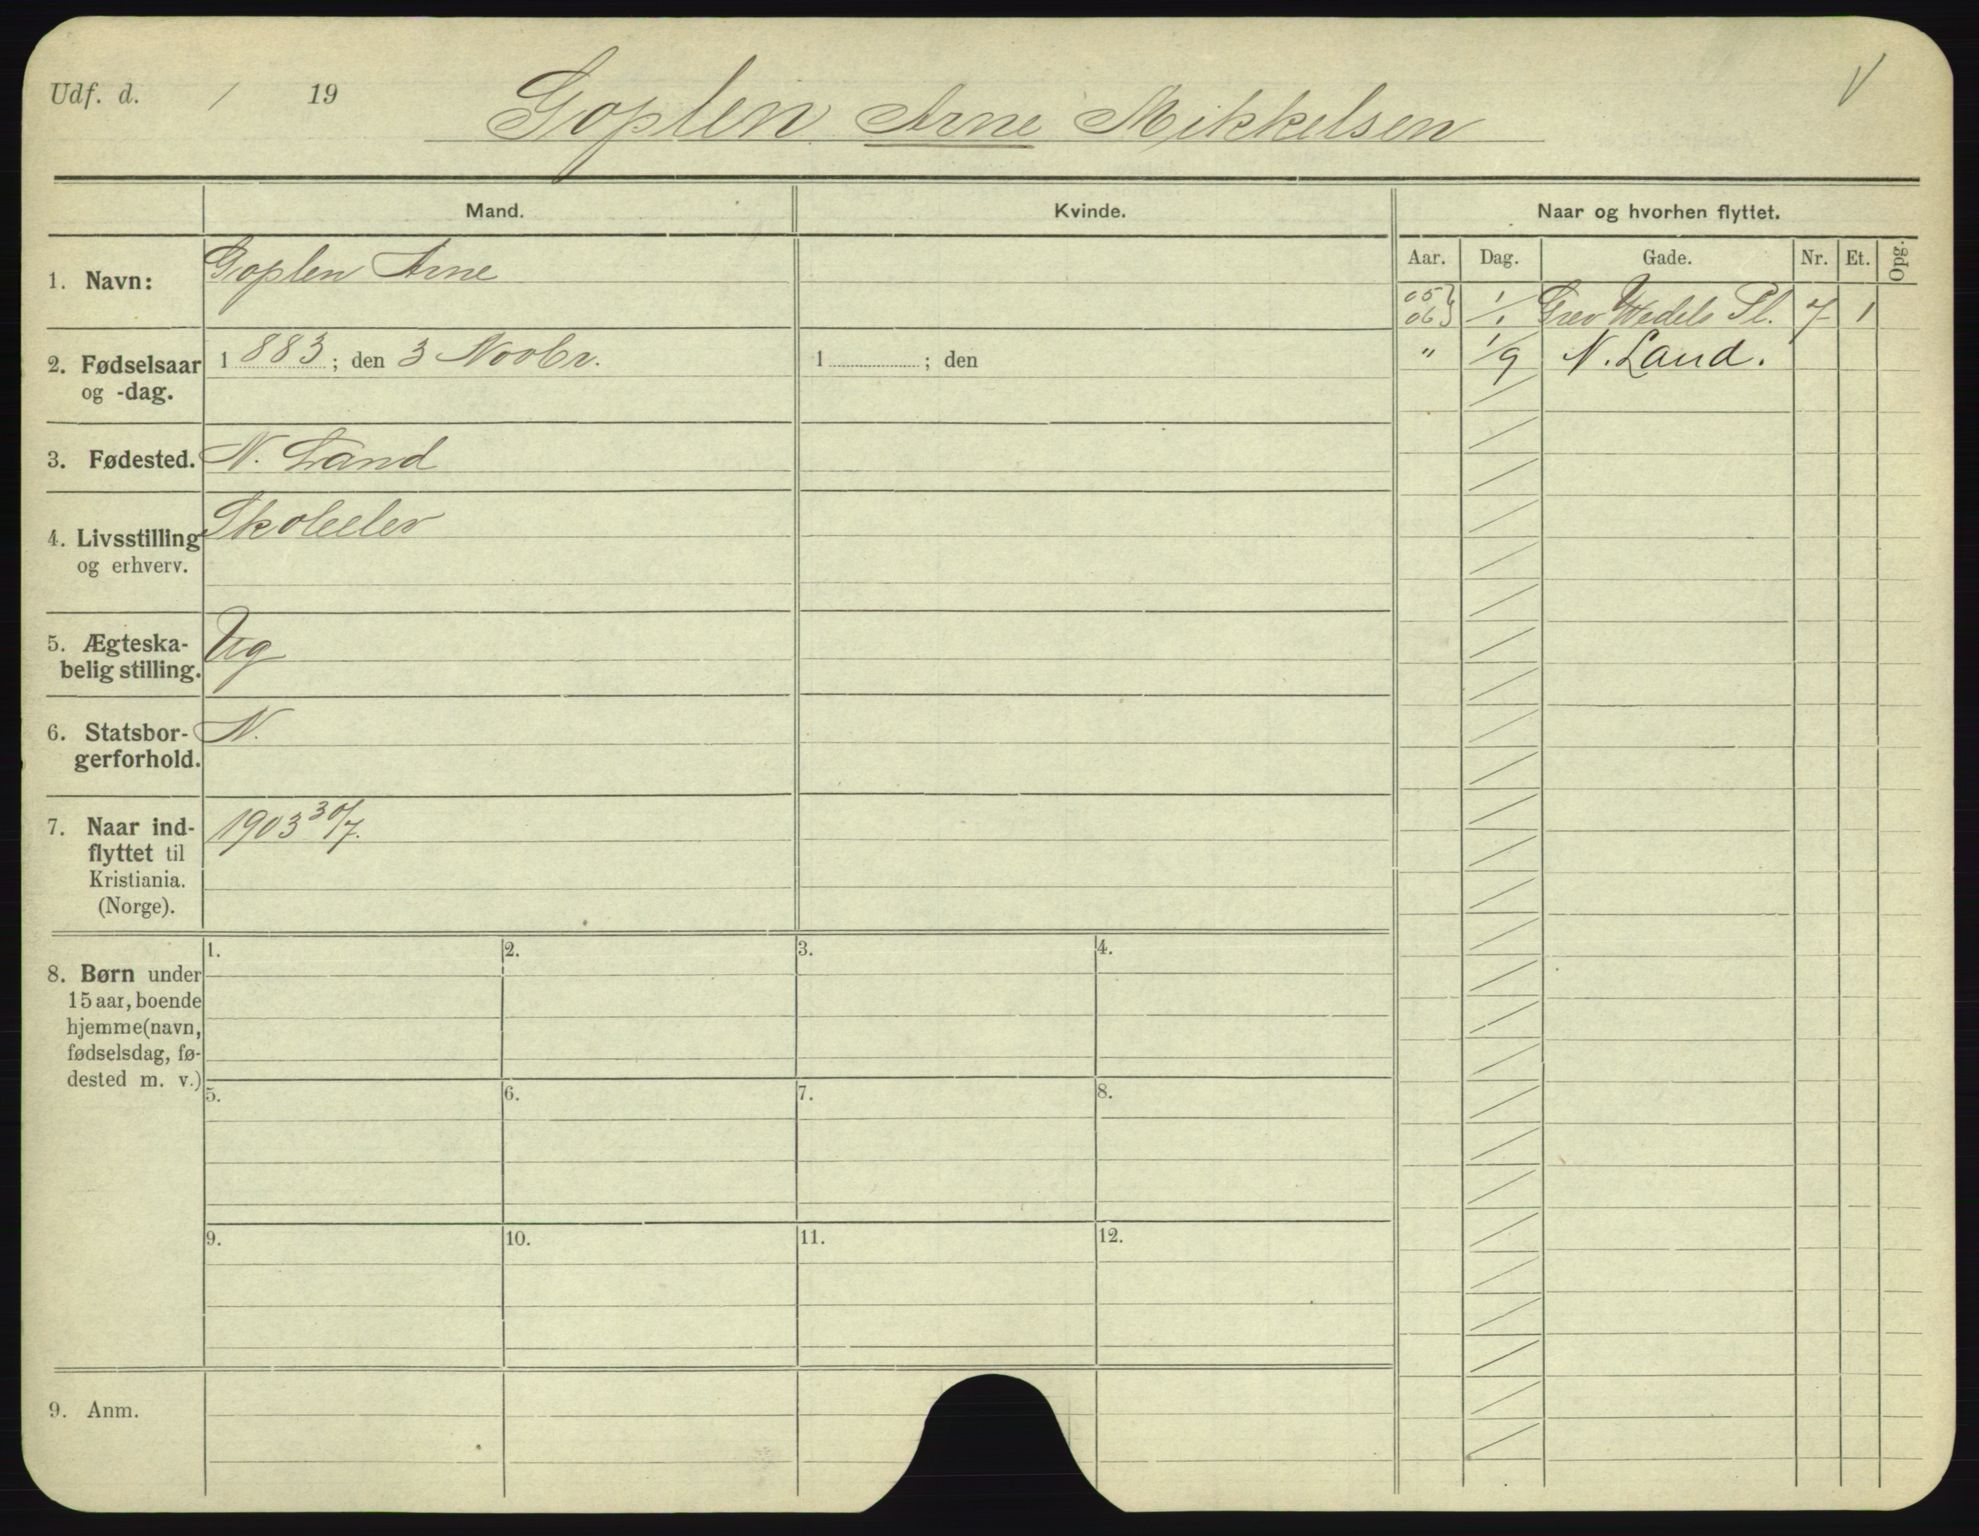 Udf. d. / 19
Goplen Arne Mikkelsen
V
Mand. Kvinde. Naar og hvorhen flyttet.
Aar. Dag. Gade. Nr. Et. Opg.
1. Navn: Goplen Arne
05 } 1/1 Grev Wedels Pl. 7 1
06 }
" 1/9 N. Land.
2. Fødselsaar 1883; den 3 Novbr. 1 ; den
og -dag.
3. Fødested. N. Land
4. Livsstilling Skoleelev
og erhverv.
5. Ægteska- Ug
belig stilling.
6. Statsbor- N.
gerforhold.
7. Naar ind- 1903 30/7.
flyttet til
Kristiania.
(Norge).
1. 2. 3. 4.
8. Børn under
15 aar, boende
hjemme (navn,
fødselsdag, fø-
dested m. v.)
5. 6. 7. 8.
9. 10. 11. 12.
9. Anm.